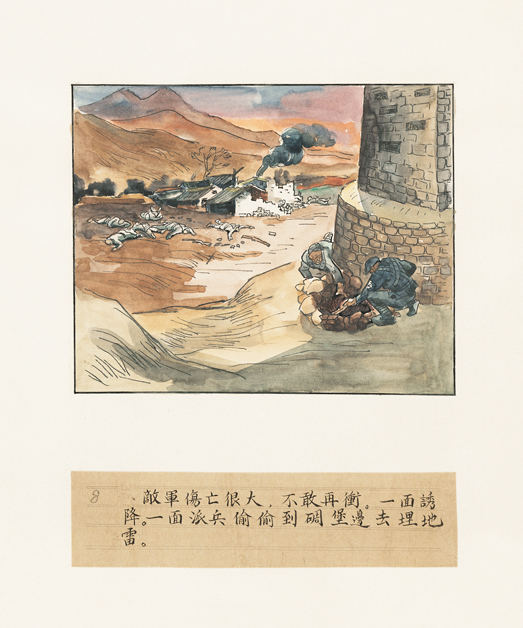 8、敵軍傷亡很大,不敢再衝。一面誘
降。一面派兵偷偷到碉堡邊去埋地
雷。